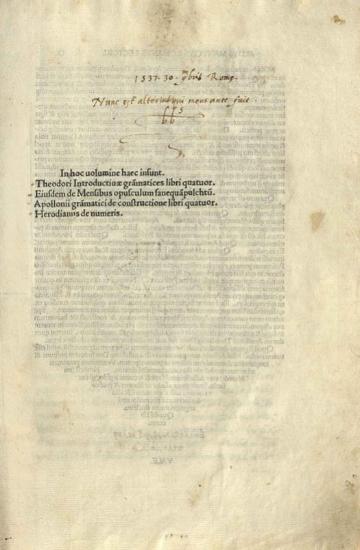 1537. 30. 9bris Rome.
Nunc est alterius qui meus ante fuit
In hoc uolumine haec insunt.
Theodori Introductiuæ grāmatices libri quatuor.
Eiusdem de Mensibus opusculum sanequāpulchrū.
Apollonii grāmatici de constructione libri quatuor.
Herodianus de numeris.